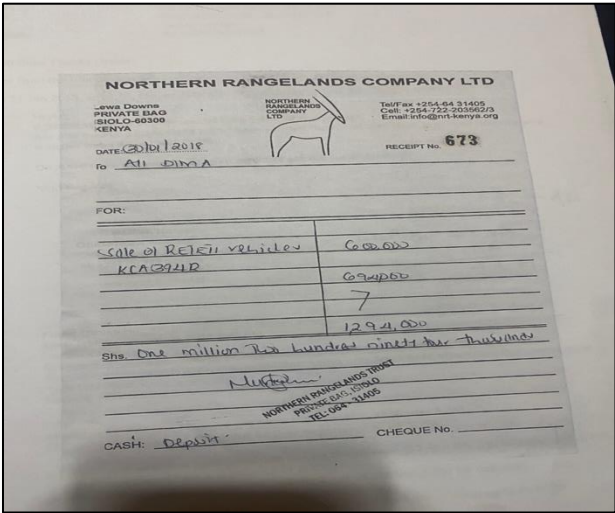 NORTHERN RANGELANDS COMPANY LTD
Lewa Downs
PRIVATE BAG
ISIOLO-60300
KENYA
NORTHERN
RANGELANDS
COMPANY
LTD
Tel/Fax +254-64 31405
Cell: +254-722-203562/3
Email:info@nrt-kenya.org
DATE: 30/01/2018
RECEIPT No. 673
To Ali DIMA
FOR:
Sale of vehicles 600,000
KCA394D
694,000
7
1294,000
Shs. One million Two hundred ninety four thousand
NORTHERN RANGELANDS TRUST
PRIVATE BAG, ISIOLO
TEL: 064 - 31405
CASH: Deposit
CHEQUE No.